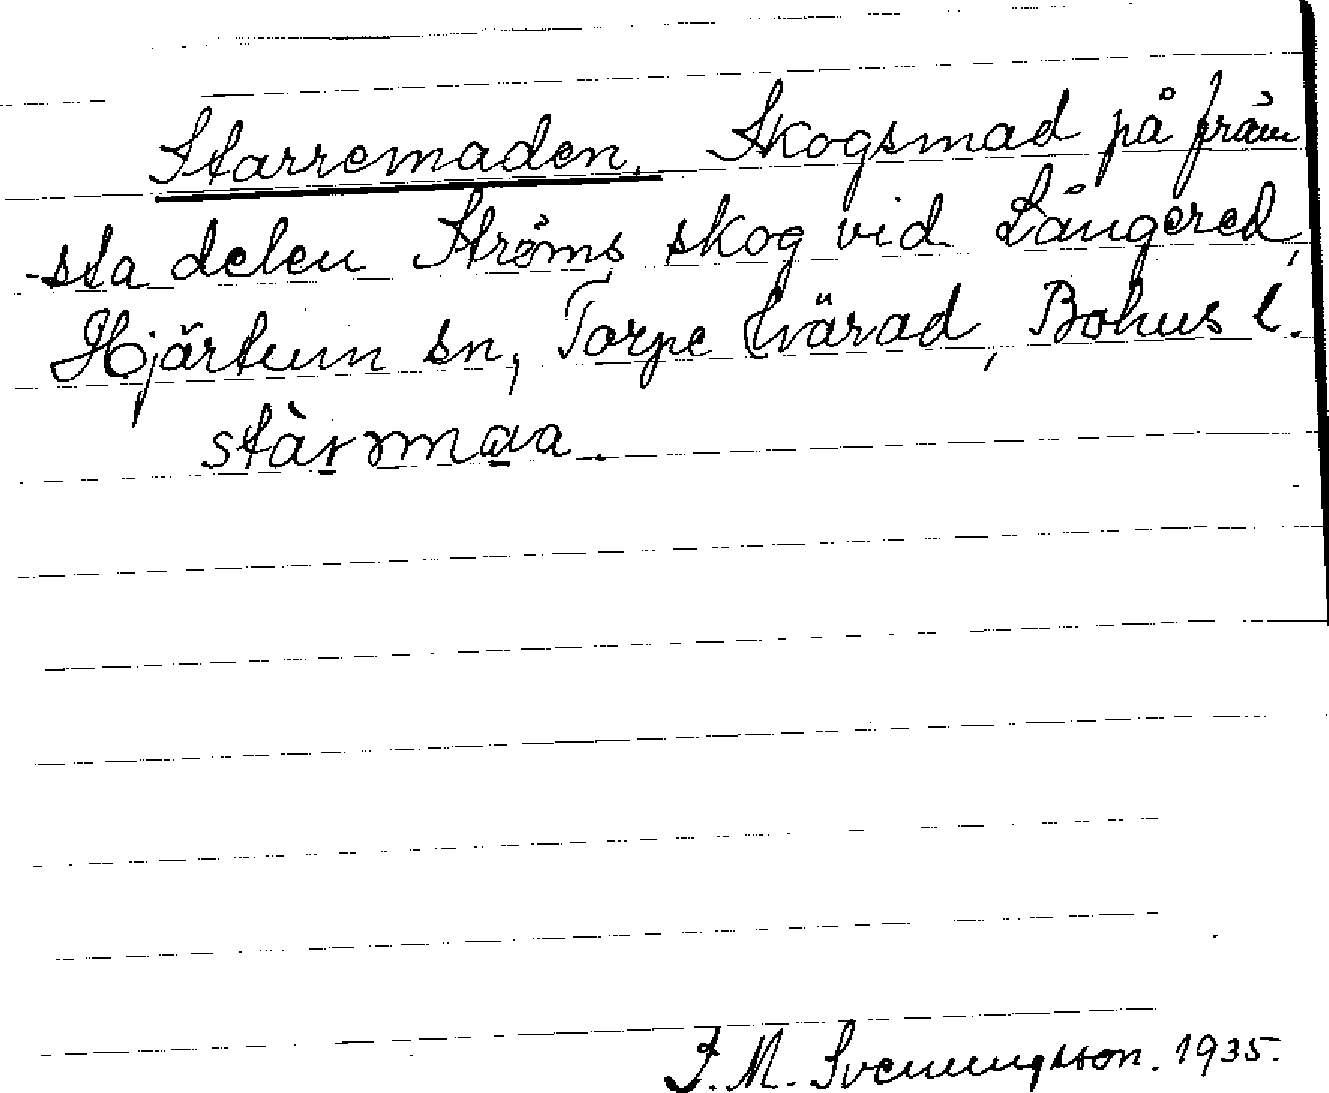 Starremaden. Skogsmad på främ
-sta delen Ströms skog vid Långered,
Hjärtum sn, Torpe härad, Bohus l.
stàrmaa.
J. M. Svenningsson. 1935.